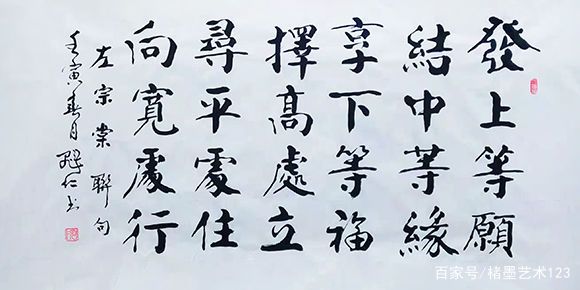 發上等願
結中等緣
享下等福
擇高處立
尋平處住
向寬處行
左宗棠聯句
壬寅春月 仁书
百家号/楮墨艺术123